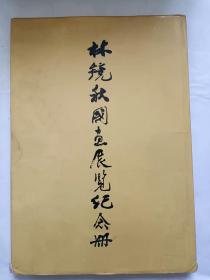 林镜秋國画展覧纪念册